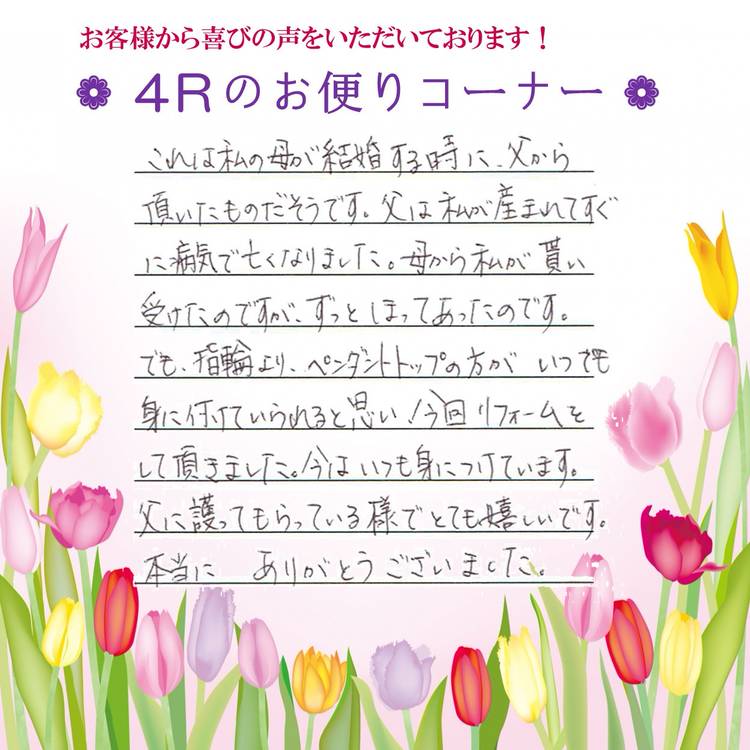 お客様から喜びの声をいただいております！
4Rのお便りコーナー
これは私の母が結婚する時に、父から
頂いたものだそうです。父は私が産まれてすぐ
に病気で亡くなりました。母から私が貰い
受けたのですが、ずっとほってあったのです。
でも、指輪より、ペンダントトップの方がいつでも
身に付けていられると思い！今回リフォームを
して頂きました。今はいつも身につけています。
父に護ってもらっている様でとても嬉しいです。
本当に ありがとうございました。